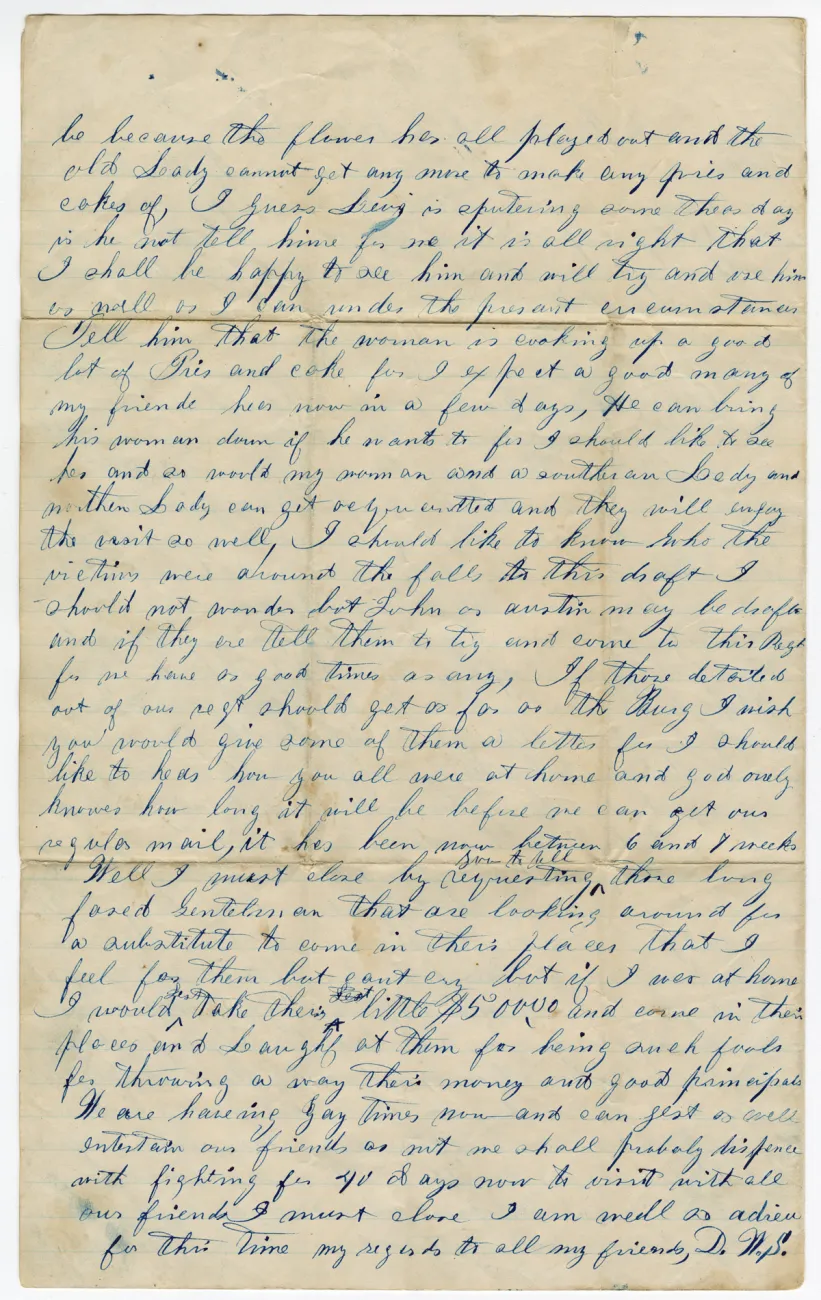 be because the flower has all played out and the
old Lady cannot get any more to make any pies and
cakes of, I guess Levi is sputering some theas day
is he not tell hime for me it is all right that
I shall be happy to see him and will try and use him
as well as I can under the present circumstances
Tell him that the woman is cooking up a good
lot of Pies and cake for I expect a good many of
my friends hear now in a few days, He can bring
his woman down if he wants to for I should like to see
her and so would my woman and a southern Lady and
northen Lady can get acquantted and they will enjoy
the visit so well, I should like to know who the
victims were around the falls to this draft I
should not wonder but John or austin may be drafte
and if they are tell them to try and come to this Regt
for we have as good times as any, If those detailed
out of our regt should get as far as the Burg I wish
you would give some of them a letter for I should
like to hear how you all were at home and god onely
knows how long it will be before we can get our
regular mail, it has been now between 6 and 7 weeks
Well I must close by requesting you to tell those long
faced Gentelman that are looking around for
a substitute to come in their places that I
feel for them but cant cry but if I was at home
I would just take their little $500.00 and come in their
places and Laugh at them for being such fools
for throwing a way their money and good principals
We are haveing Gay times now and can jest as well
entertain our friends as not we shall probaly dispence
with fighting for 40 days now to visit with all
our friends I must close I am well so adieu
for this time my regards to all my friends, D. W. S.